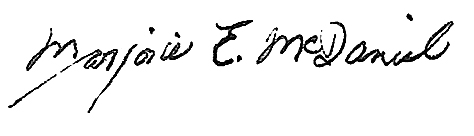 Marjorie E. McDaniel